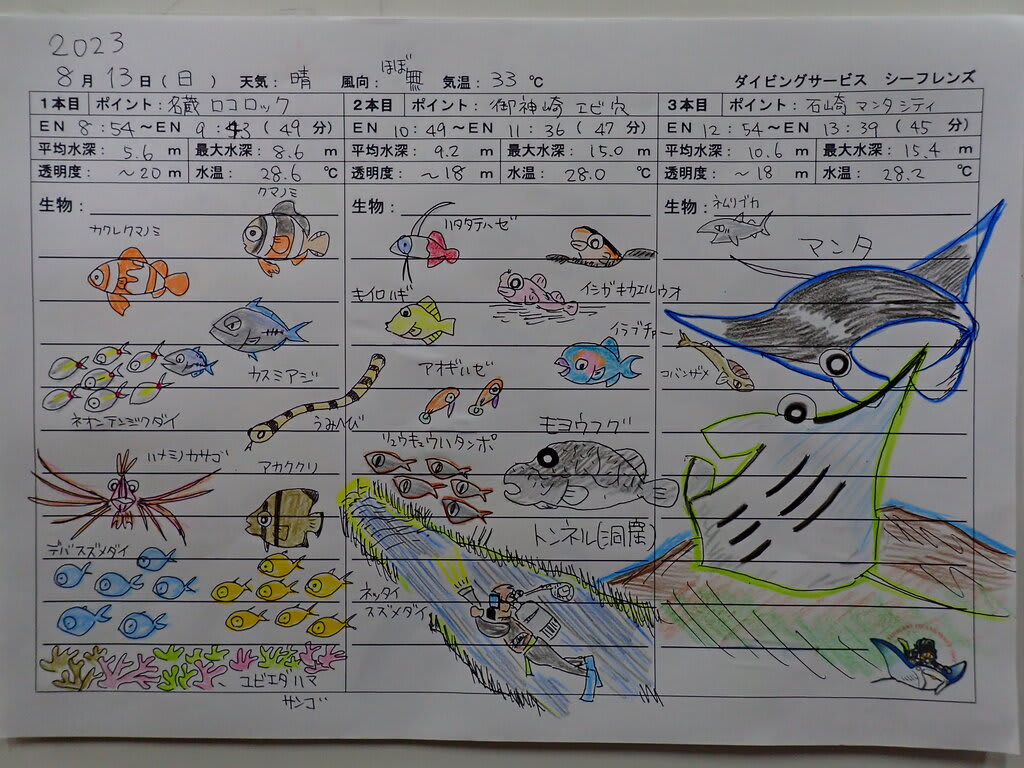 2023
8月13日(日) 天気:晴 風向:ほぼ無 気温:33℃ ダイビングサービス シーフレンズ
1本目 ポイント:名蔵 ロコロック
EN 8:54~EN 9:43(49分)
平均水深:5.6m 最大水深:8.6m
透明度:~20m 水温:28.6℃
生物:
クマノミ
カクレクマノミ
カスミアジ
ネオンテンジクダイ
うみへび
ハナミノカサゴ
アカククリ
デバスズメダイ
ネッタイ
スズメダイ
ユビエダハマ
サンゴ
2本目 ポイント:御神崎 エビ穴
EN 10:49~EN 11:36(47分)
平均水深:9.2m 最大水深:15.0m
透明度:~18m 水温:28.0℃
生物:
ハタタテハゼ
イシガキカエルウオ
キイロハギ
イラブチャー
アオギハゼ
リュウキュウハタンポ
モヨウフグ
トンネル(洞窟)
3本目 ポイント:石崎 マンタシティ
EN 12:54~EN 13:39(45分)
平均水深:10.6m 最大水深:15.4m
透明度:~18m 水温:28.2℃
生物:
ネムリブカ
マンタ
コバンザメ